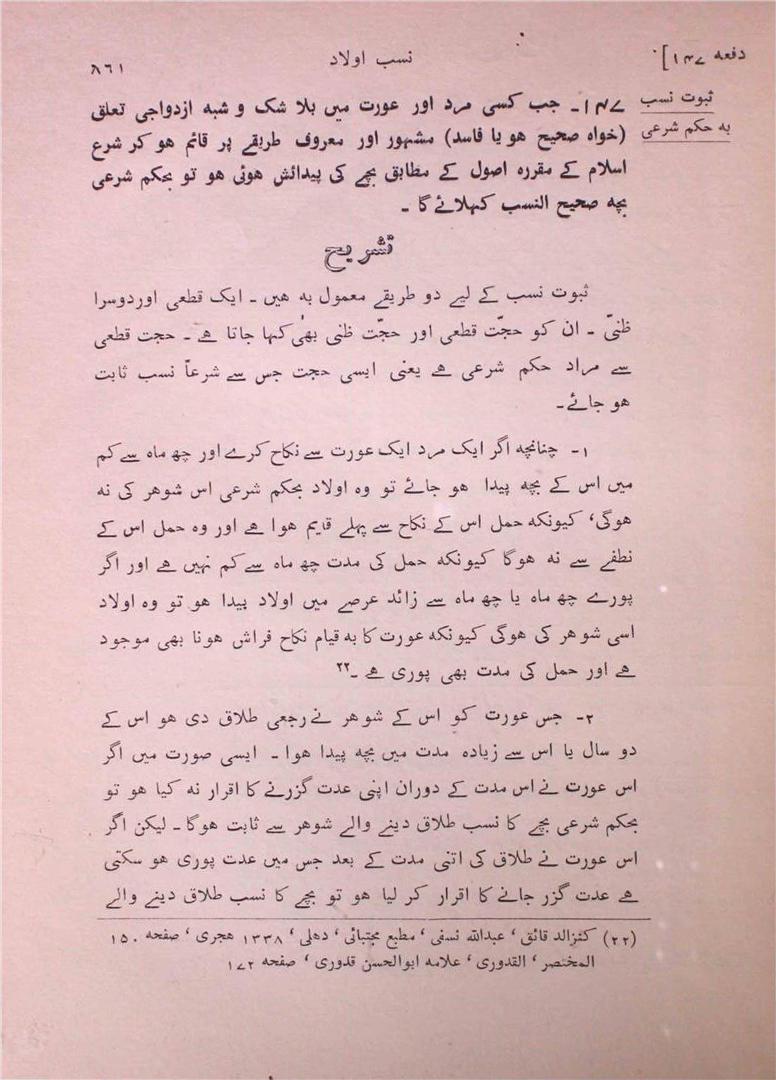 دفعہ ۱۴۷]
نسب اولاد
۸۶۱
ثبوت نسب
بہ حکم شرعی
۱۴۷۔ جب کسی مرد اور عورت میں بلا شک و شبہ ازدواجی تعلق
(خواہ صحیح ہو یا فاسد) مشہور اور معروف طریقے پر قائم ہو کر شرع
اسلام کے مقررہ اصول کے مطابق بچے کی پیدائش ہوئی ہو تو بحکم شرعی
بچہ صحیح النسب کہلائے گا ۔
تشریح
ثبوت نسب کے لیے دو طریقے معمول بہ ہیں ۔ ایک قطعی اور دوسرا
ظنیّ ۔ ان کو حجّت قطعی اور حجّت ظنی بھی کہا جاتا ہے ۔ حجت قطعی
سے مراد حکم شرعی ہے یعنی ایسی حجت جس سے شرعاً نسب ثابت
ہو جائے۔
۱۔ چنانچہ اگر ایک مرد ایک عورت سے نکاح کرے اور چھ ماہ سے کم
میں اس کے بچہ پیدا ہو جائے تو وہ اولاد بحکم شرعی اس شوہر کی نہ
ہوگی، کیونکہ حمل اس کے نکاح سے پہلے قایم ہوا ہے اور وہ حمل اس کے
نطفے سے نہ ہوگا کیونکہ حمل کی مدت چھ ماہ سے کم نہیں ہے اور اگر
پورے چھ ماہ یا چھ ماہ سے زائد عرصے میں اولاد پیدا ہو تو وہ اولاد
اسی شوہر کی ہوگی کیونکہ عورت کا بہ قیام نکاح فراش ہونا بھی موجود
ہے اور حمل کی مدت بھی پوری ہے ۔۲۲
۲۔ جس عورت کو اس کے شوہر نے رجعی طلاق دی ہو اس کے
دو سال یا اس سے زیادہ مدت میں بچہ پیدا ہوا ۔ ایسی صورت میں اگر
اس عورت نے اس مدت کے دوران اپنی عدت گزرنے کا اقرار نہ کیا ہو تو
بحکم شرعی بچے کا نسب طلاق دینے والے شوہر سے ثابت ہوگا ۔ لیکن اگر
اس عورت نے طلاق کی اتنی مدت کے بعد جس میں عدت پوری ہو سکتی
ہے عدت گزر جانے کا اقرار کر لیا ہو تو بچے کا نسب طلاق دینے والے
(۲۲) کنزالد قائق ، عبداللہ نسفی ، مطبع مجتبائی ، دھلی ، ۱۳۳۸ ھجری ، صفحہ ۱۵۰
المختصر ، القدوری ، علامہ ابوالحسن قدوری ، صفحہ ۱۷۲